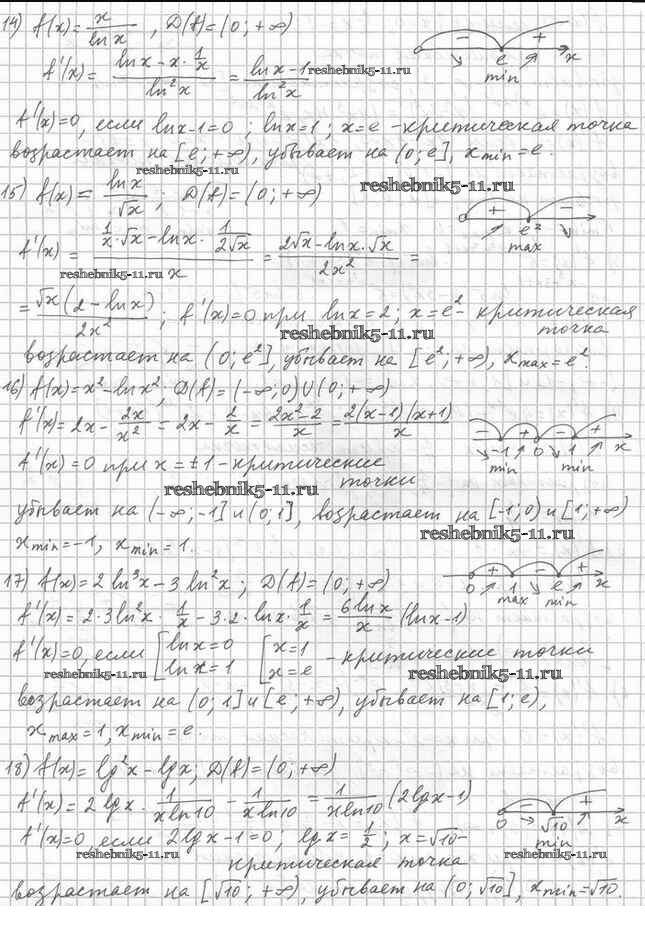 14) f(x) = x/ln x , D(f)=(0;+∞)
− + e x min
f'(x) = (ln x − x·1/x)/ln²x = (ln x − 1)/ln²x
reshebnik5-11.ru
f'(x)=0, если ln x−1=0 ; ln x=1 ; x=e -критическая точка
возрастает на [e;+∞), убывает на (0;e], x min = e.
reshebnik5-11.ru
15) f(x) = ln x/√x ; D(f)=(0;+∞)
reshebnik5-11.ru
+ − e² max
f'(x) = (1/x·√x − ln x·1/(2√x))/x = (2√x − ln x·√x)/2x² =
reshebnik5-11.ru
= √x(2 − ln x)/2x² ; f'(x)=0 при ln x=2 ; x=e² - критическая
точка
reshebnik5-11.ru
возрастает на (0;e²], убывает на [e²;+∞), x max = e².
16) f(x)=x²−ln x², D(f)=(−∞;0)∪(0;+∞)
f'(x)= 2x − 2x/x² = 2x − 2/x = (2x²−2)/x = 2(x−1)(x+1)/x
− + − + -1 0 1 x min min
f'(x)=0 при x=±1 - критические
точки
reshebnik5-11.ru
убывает на (−∞;−1] и (0;1], возрастает на [−1;0) и [1;+∞)
reshebnik5-11.ru
x min = −1, x min = 1.
17) f(x)= 2 ln³x − 3 ln²x ; D(f)=(0;+∞)
+ − + 0 1 e x max min
f'(x)= 2·3ln²x · 1/x − 3·2·ln x·1/x = 6 ln x/x (ln x−1)
f'(x)=0, если [ln x=0 [x=1 - критические точки
ln x=1 x=e
reshebnik5-11.ru
reshebnik5-11.ru
возрастает на (0;1] и [e;+∞), убывает на [1;e),
x max = 1, x min = e.
18) f(x)= lg²x − lg x ; D(f)=(0;+∞)
f'(x)= 2 lg x · 1/(x ln 10) − 1/(x ln 10) = 1/(x ln 10) (2 lg x−1)
− + 0 √10 x min
f'(x)=0, если 2 lg x−1=0 ; lg x = 1/2 ; x=√10-
reshebnik5-11.ru
reshebnik5-11.ru
критическая точка
возрастает на [√10;+∞), убывает на (0;√10], x min = √10.